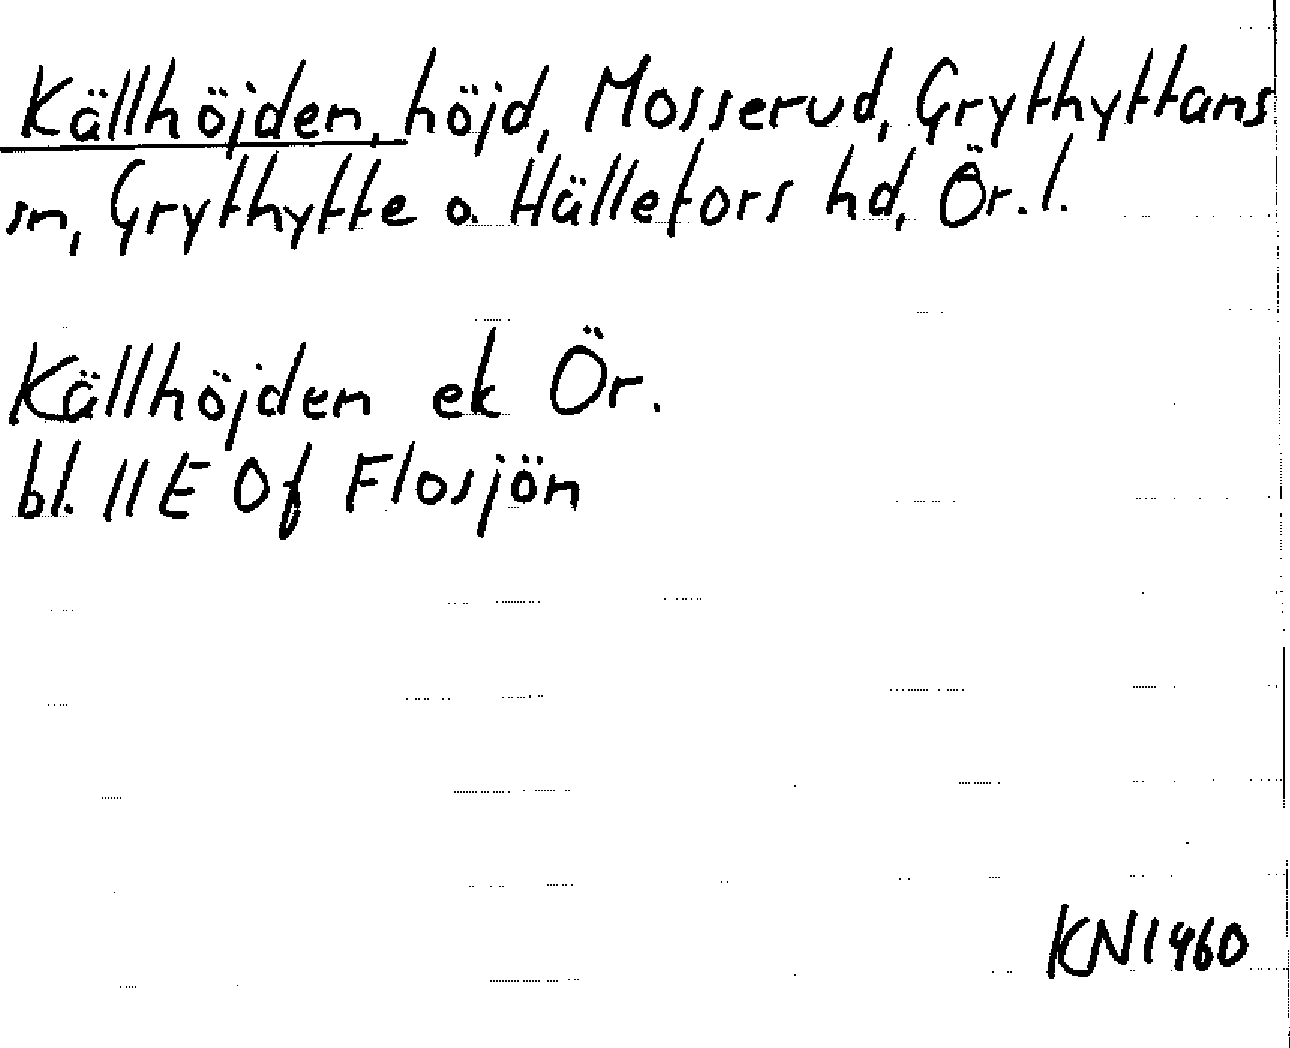 Källhöjden, höjd, Mosserud, Grythyttans
sn, Grythytte o. Hällefors hd, Ör. l.
Källhöjden ek Ör.
bl. 11E 0f Flosjön
KN1960